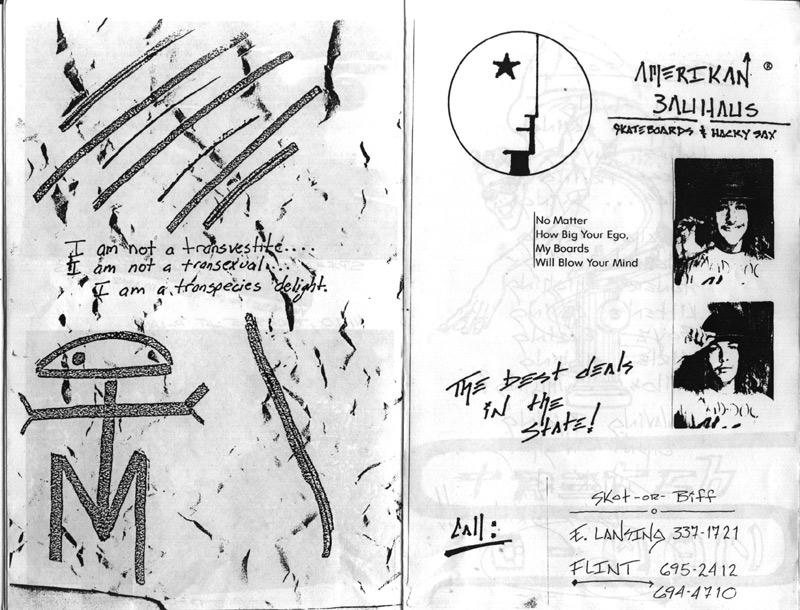 I am not a transvestite....
I am not a transexual...
I am a transpecies delight.
AMERIKAN ®
BAUHAUS
SKATEBOARDS & HACKY SAX
No Matter
How Big Your Ego,
My Boards
Will Blow Your Mind
The best deals
in the
State!
Call:
Skot-or-Biff
E. LANSING 337-1721
FLINT 695-2412
694-4710